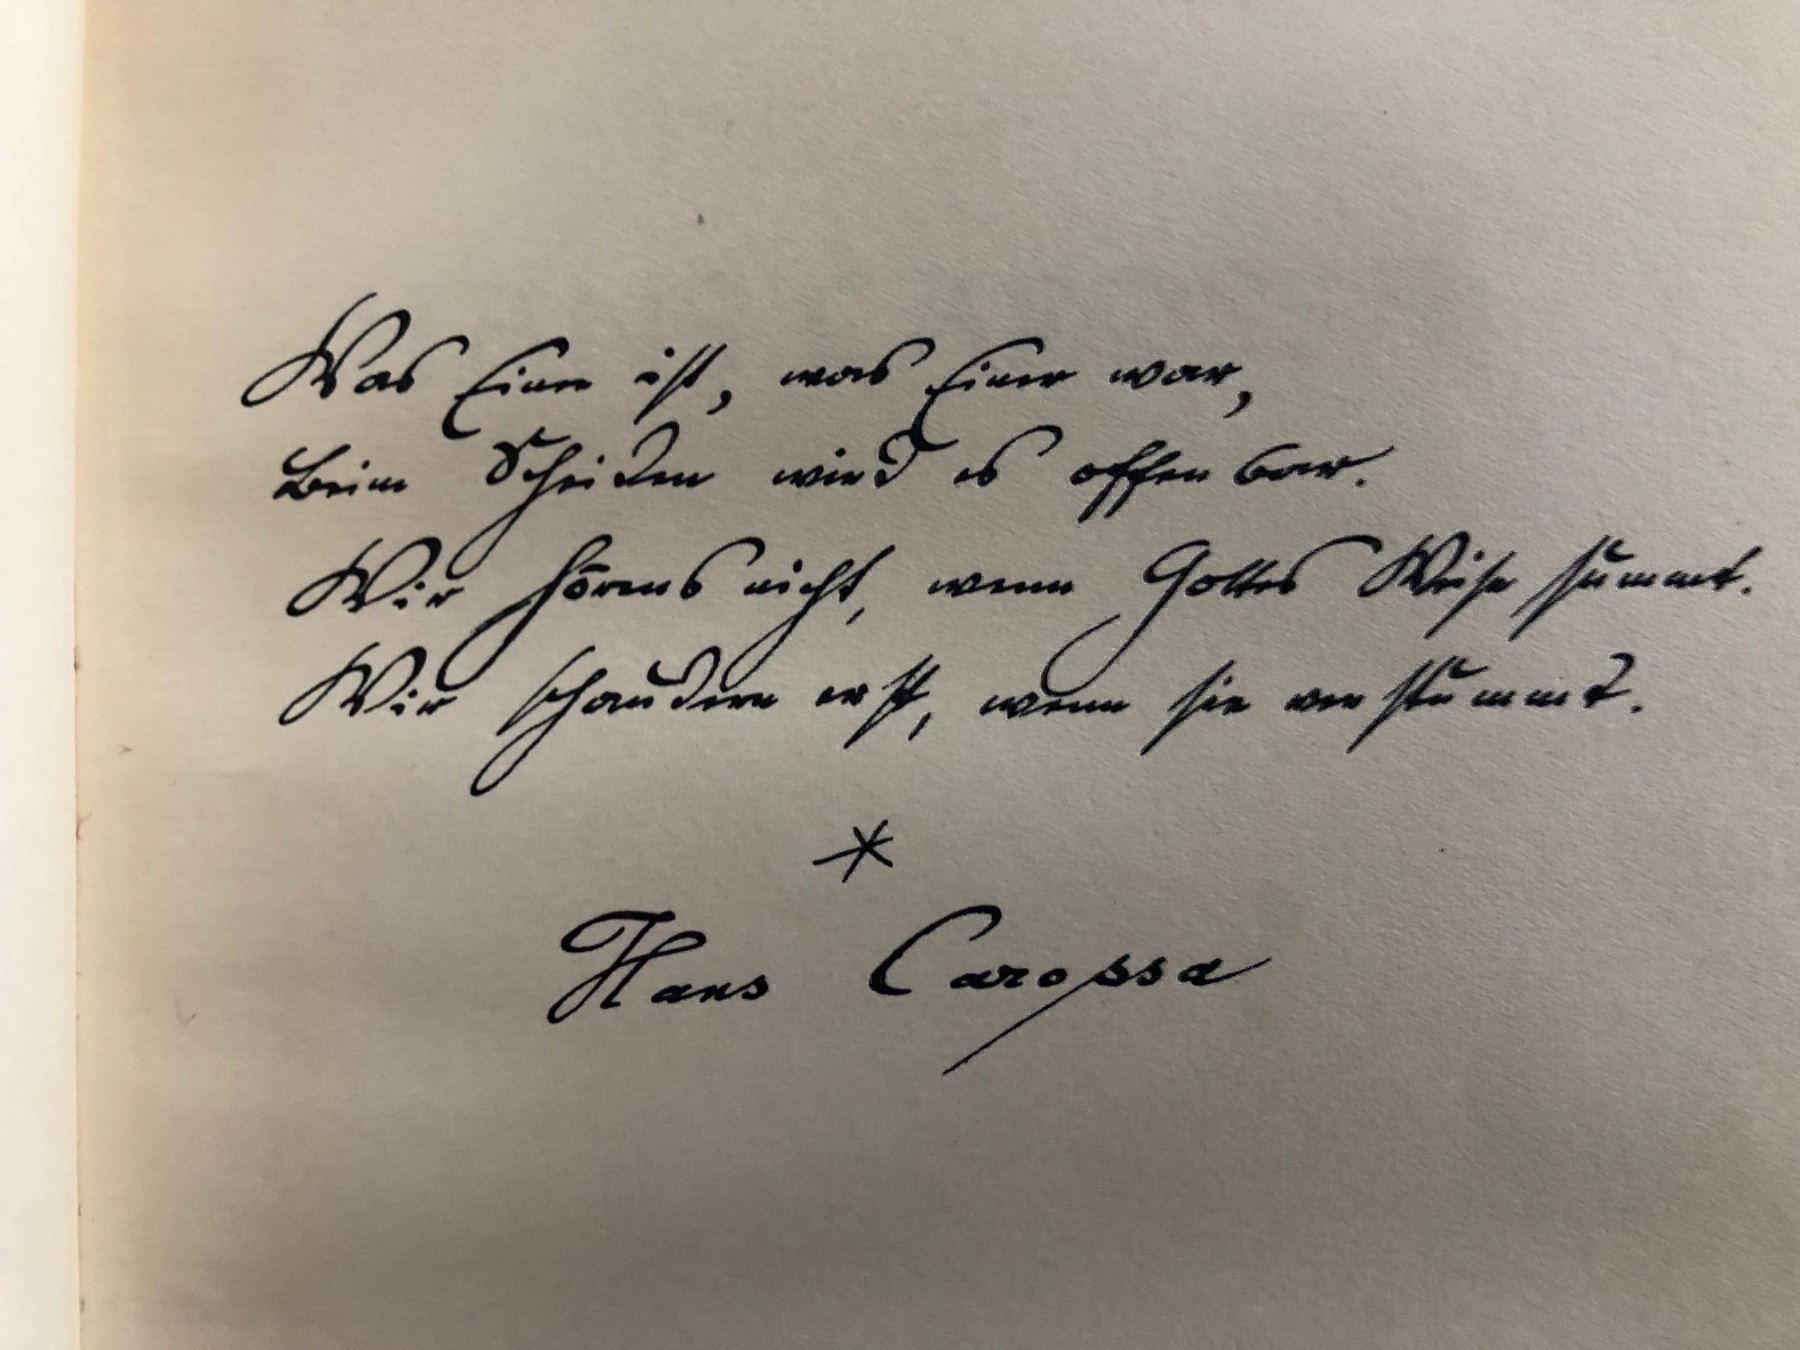 Was Einer ist, was Einer war,
Beim Scheiden wird es offenbar.
Wir hörens nicht, wenn Gottes Weise summt.
Wir schaudern erst, wenn sie verstummt.
*
Hans Carossa